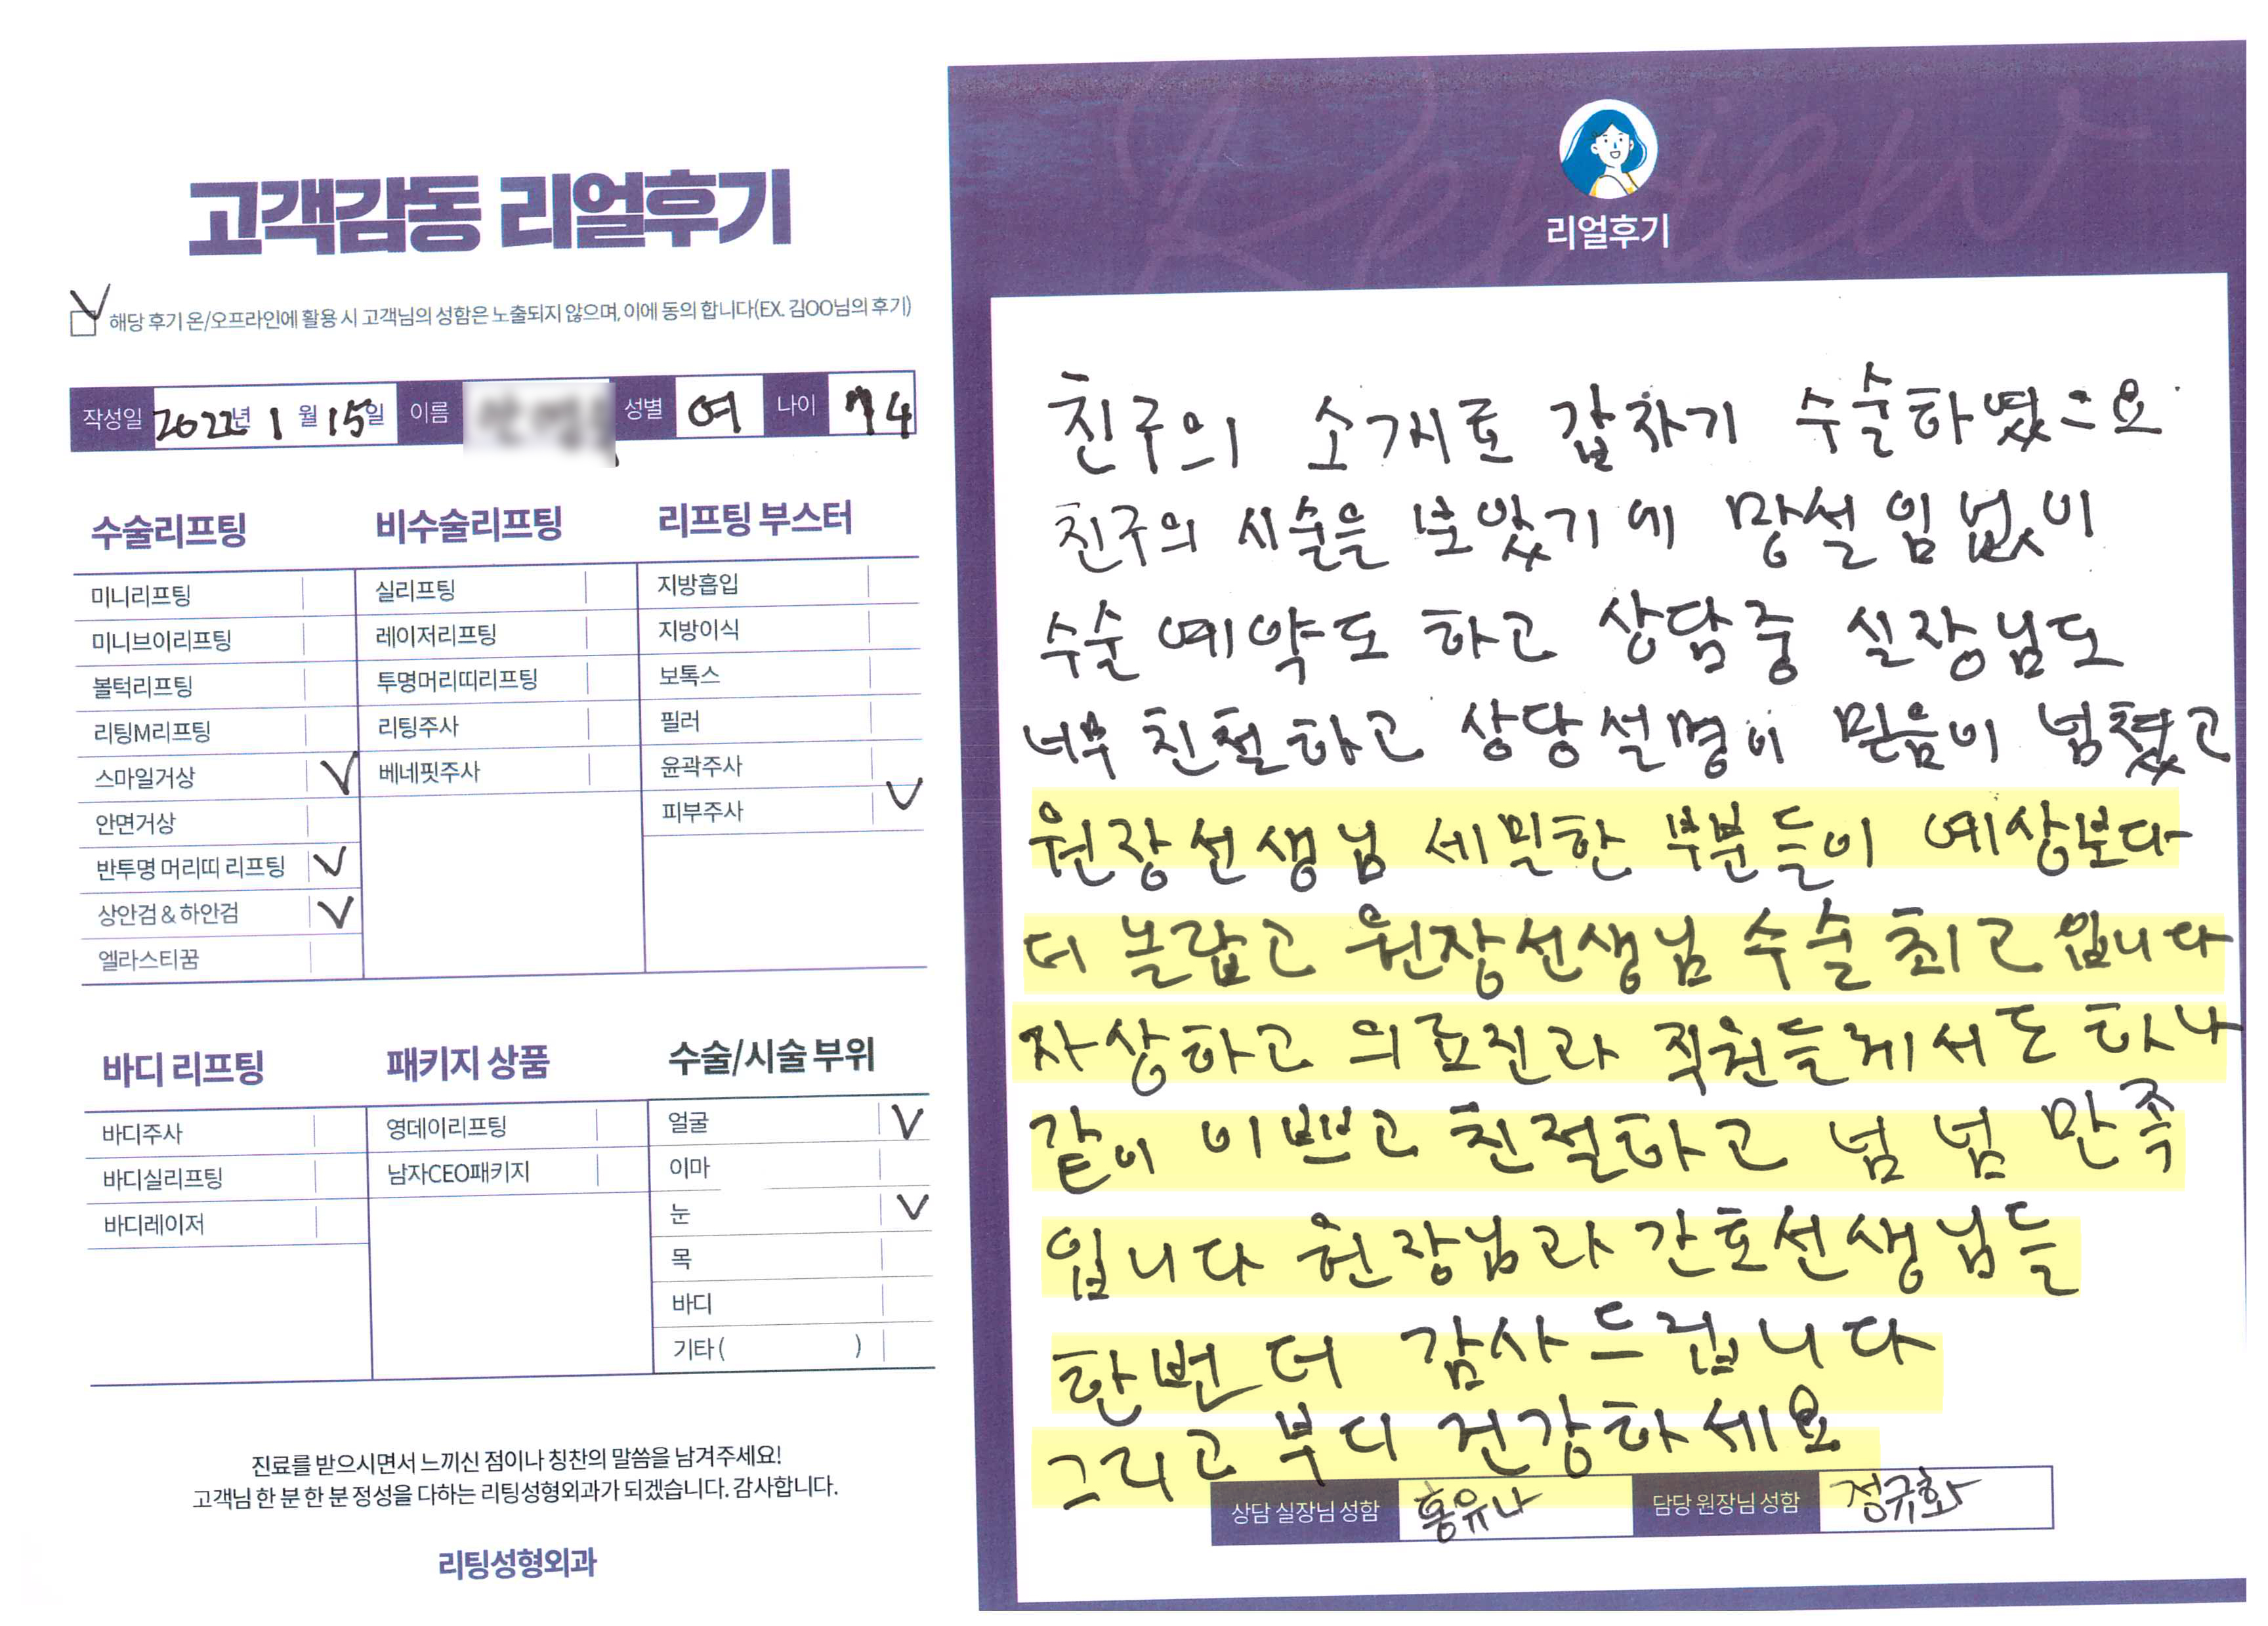 고객감동 리얼후기
해당 후기 온/오프라인에 활용 시 고객님의 성함은 노출되지 않으며, 이에 동의 합니다(EX. 김OO님의 후기)
작성일 2022년 1월 15일 이름 성별 여 나이 74
수술리프팅
미니리프팅
미니브이리프팅
볼턱리프팅
리팅M리프팅
스마일거상 V
안면거상
반투명 머리띠 리프팅 V
상안검 & 하안검 V
엘라스티꿈
비수술리프팅
실리프팅
레이저리프팅
투명머리띠리프팅
리팅주사
베네핏주사
리프팅 부스터
지방흡입
지방이식
보톡스
필러
윤곽주사
피부주사 V
바디 리프팅
바디주사
바디실리프팅
바디레이저
패키지 상품
영데이리프팅
남자CEO패키지
수술/시술 부위
얼굴 V
이마
눈 V
목
바디
기타 ( )
진료를 받으시면서 느끼신 점이나 칭찬의 말씀을 남겨주세요!
고객님 한 분 한 분 정성을 다하는 리팅성형외과가 되겠습니다. 감사합니다.
리팅성형외과
Review
리얼후기
친구의 소개로 갑자기 수술하였으요
친구의 시술을 보았기에 망설임없이
수술 예약도 하고 상담중 실장님도
너무 친절하고 상당설명이 믿음이 넘쳤고
원장선생님 세밀한 부분들이 예상보다
더 놀랍고 원장선생님 수술 최고입니다
자상하고 의료진과 직원들께서도 하나
같이 이쁘고 친절하고 넘 넘 만족
입니다 원장님과 간호선생님들
한번 더 감사드립니다
그리고 부디 건강하세요
상담 실장님 성함 홍유나 담당 원장님 성함 정규화